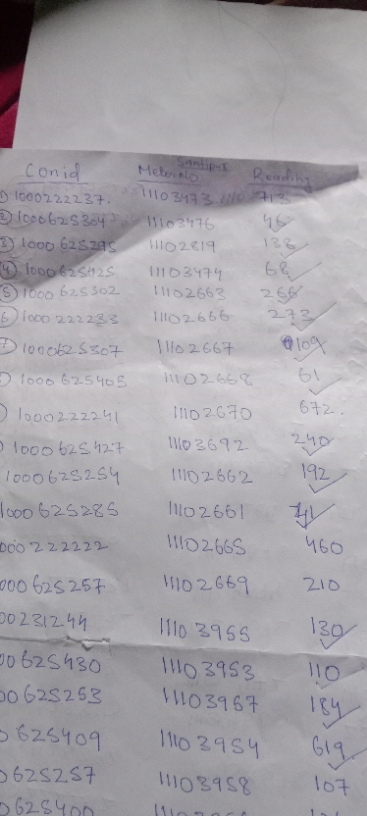 Santipur
Conid Meter No Reading
① 1000222237. 11103473 713
② 1000625304 11103476 46
③ 1000625295 11102819 138
④ 1000625425 11103474 68
⑤ 1000625302 11102663 266
⑥ 1000222233 11102666 273
⑦ 1000625307 11102667 109
1000625405 11102668 61
1000222241 11102670 672.
1000625427 11103692 240
1000625254 11102662 192
1000625285 11102661 41
000222222 11102665 460
000625257 11102669 210
00231244 11103955 130
00625430 11103953 110
00625253 11103967 184
0625409 11103954 619
0625257 11103958 107
0625400